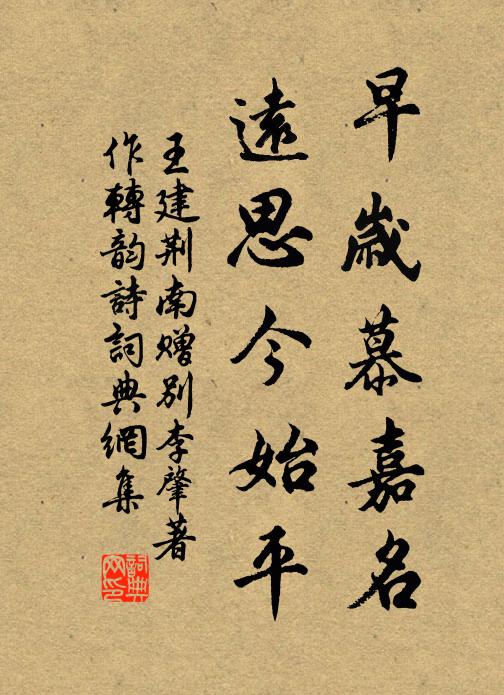 早歲慕嘉名
遠思今始平
王建荆南赠別李肇著
作轉韵詩詞典網集
詞典
网印